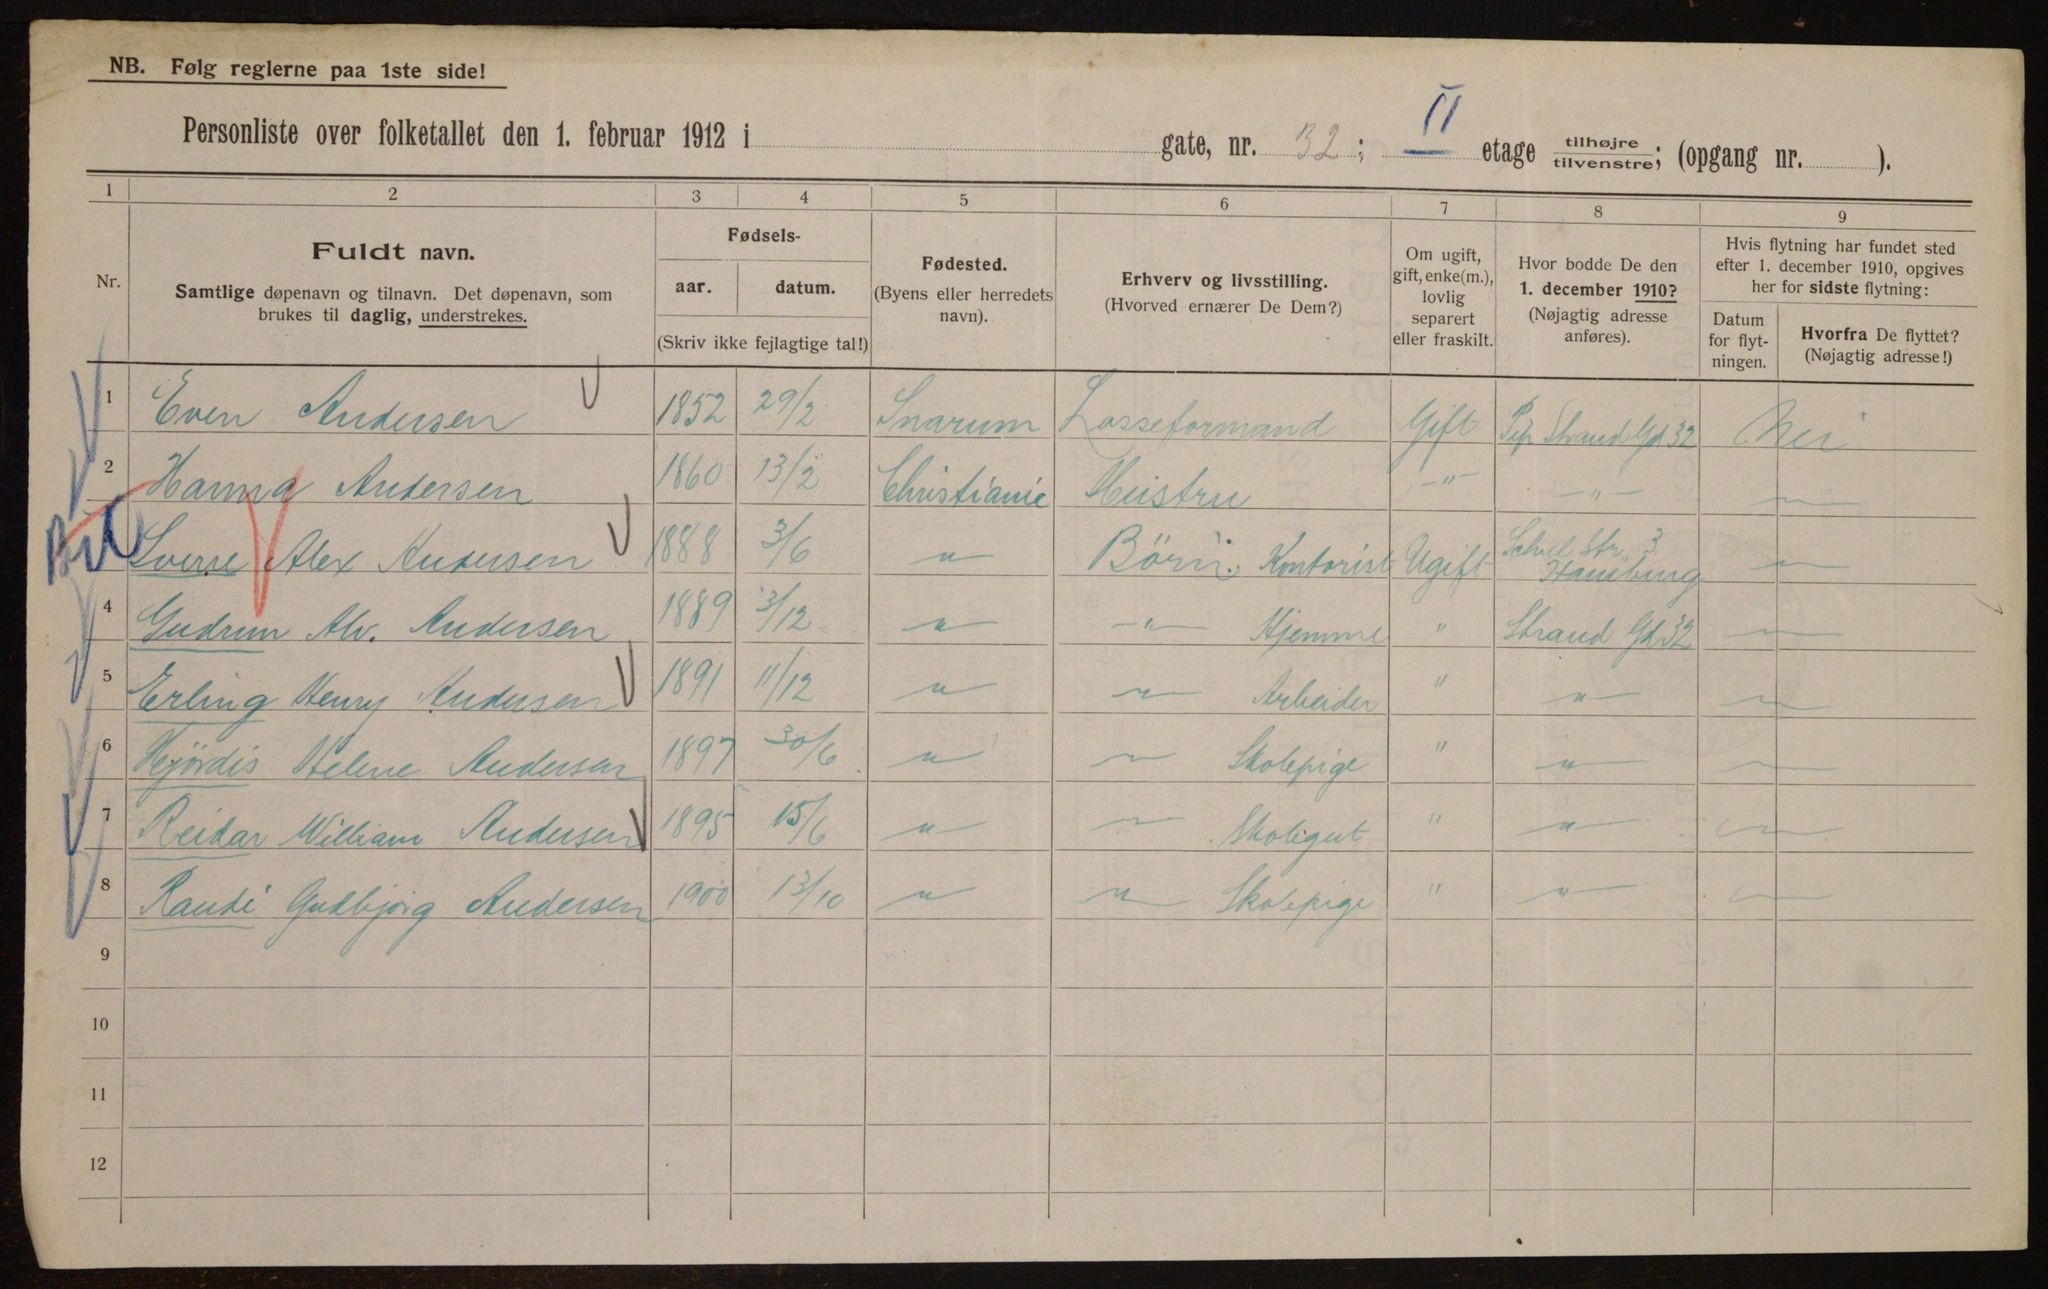 NB. Følg reglerne paa 1ste side!
Personliste over folketallet den 1. februar 1912 i gate, nr. 32; II etage tilhøjre/tilvenstre; (opgang nr. ).
1 2 3 4 5 6 7 8 9
Nr.
Fuldt navn.
Samtlige døpenavn og tilnavn. Det døpenavn, som
brukes til daglig, understrekes.
Fødsels-
aar. datum.
(Skriv ikke fejlagtige tal!)
Fødested.
(Byens eller herredets
navn).
Erhverv og livsstilling.
(Hvorved ernærer De Dem?)
Om ugift,
gift, enke(m.),
lovlig
separert
eller fraskilt.
Hvor bodde De den
1. december 1910?
(Nøjagtig adresse
anføres).
Hvis flytning har fundet sted
efter 1. december 1910, opgives
her for sidste flytning:
Datum
for flyt-
ningen.
Hvorfra De flyttet?
(Nøjagtig adresse!)
1 Even Andersen 1852 29/2 Snarum Losseformand Gift Pip Strand Gd 32 Nei
2 Hanna Andersen 1860 13/2 Christiania Hustru —"— —"—
Sverre Alex Andersen 1888 3/6 " Børn: Kontorist Ugift Str. 3
Hamburg
4 Gudrun Alv. Andersen 1889 3/12 " —"— Hjemme " Strand Gd 32
5 Erling Henry Andersen 1891 11/12 " " Arbeider " "
6 Hjørdis Helene Andersen 1897 30/6 " Skolepige " "
7 Reidar William Andersen 1895 15/6 " Skolegut " "
8 Randi Gudbjørg Andersen 1900 13/10 " " Skolepige " "
9
10
11
12